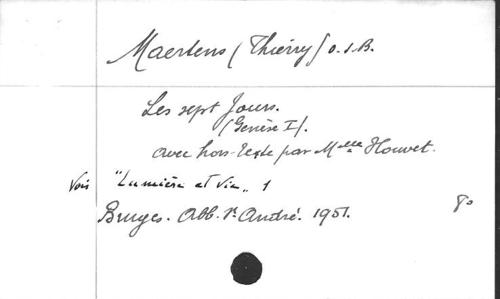 Maertens (Thierry) O.S.B.
Les sept Jours.
(Genèse I).
avec hors-texte par Melle Houvet.
Voir "Lumière et Vie" 1
Bruges. Abb. St André. 1951. 8°